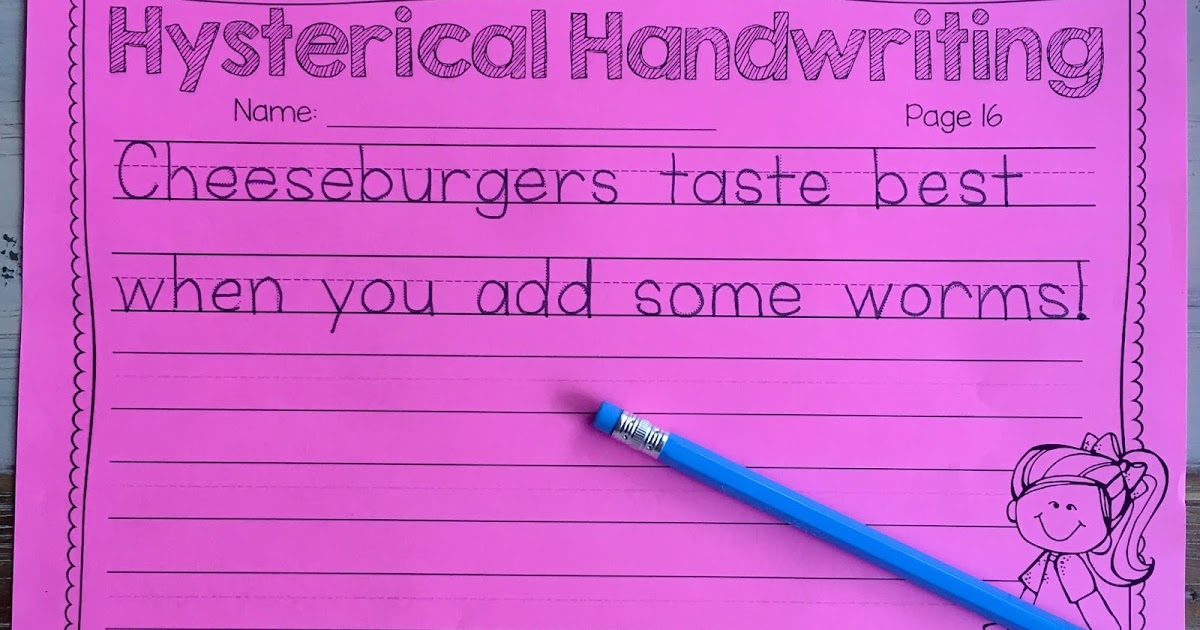 Hysterical Handwriting
Name: Page 16
Cheeseburgers taste best
when you add some worms!